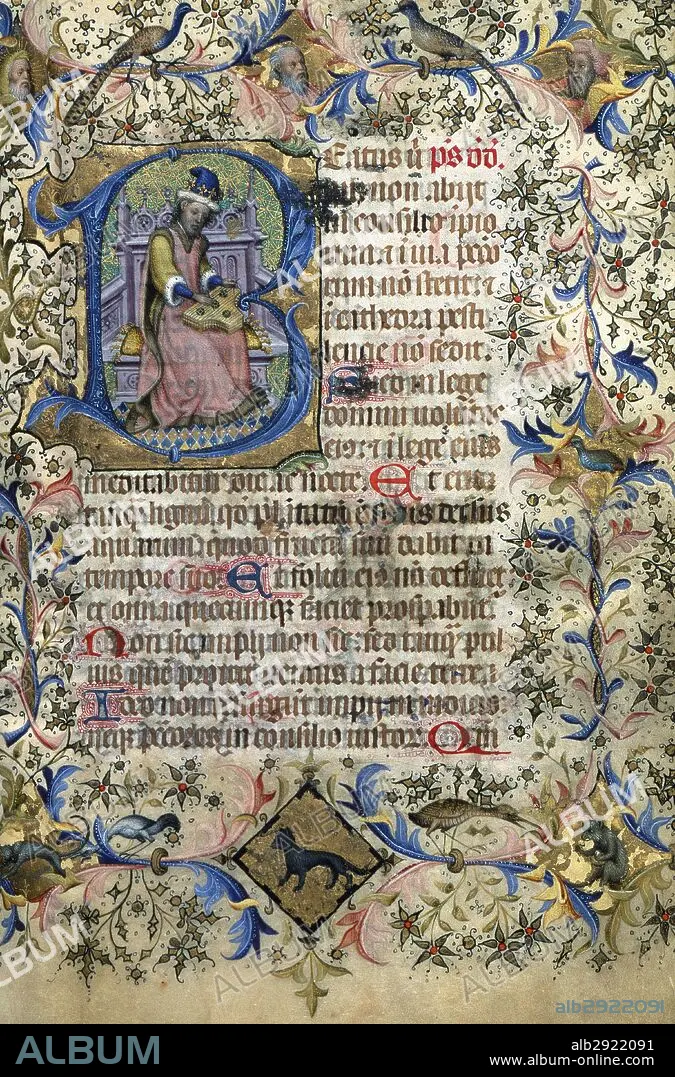 BEatus ū p̄s dd̄.
non abijt
in consilio ipio
rum et in uia peccō
rum nō stetit; et
i cathedra pesti
lencie nō sedit.
Sed in lege
domini uolūtas
eius et ī lege eiꝰ
meditabitur die ac nocte. Et erit
tanqꝫ lignum qđ plātatum ē secus decursus
aquarum quod fructū suū dabit in
tempore suo. Et foliū eiꝰ nō defluet
et omnia quecumqꝫ faciet prosꝑabunt
Non sic impij non sic sed tanqꝫ pul
uis quē proicit uentus a facie terre.
Ideo non resurgūt impij in
neqꝫ pctōres in consilio iustorꝝ Qm̄
ALBUM
alb2922091
ALBUM
alb2922091
www.album-online.com